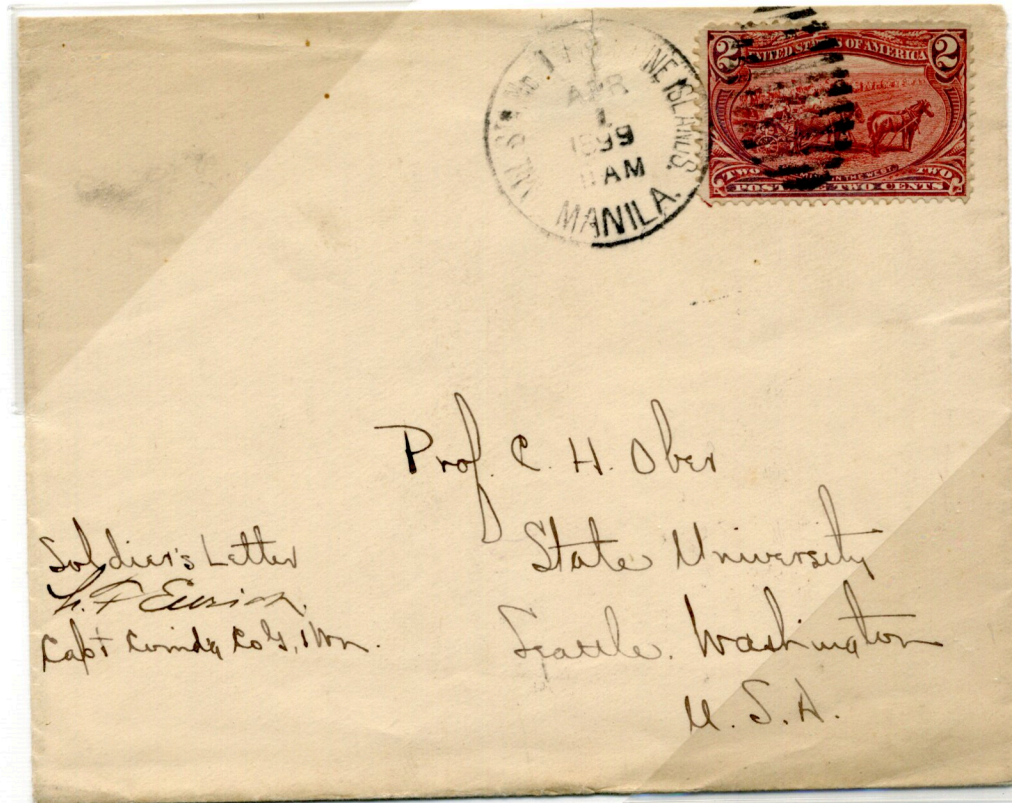 MIL. STA. No. 1 NE ISLANDS.
APR
1
1899
AM
MANILA.
2 UNITED STATES OF AMERICA 2
TWO TWO
POST TWO CENTS
Prof. C. H. Ober
State University
Seattle. Washington
U. S. A.
Soldier's Letter
Capt Comdg Co G, 1 Wn.